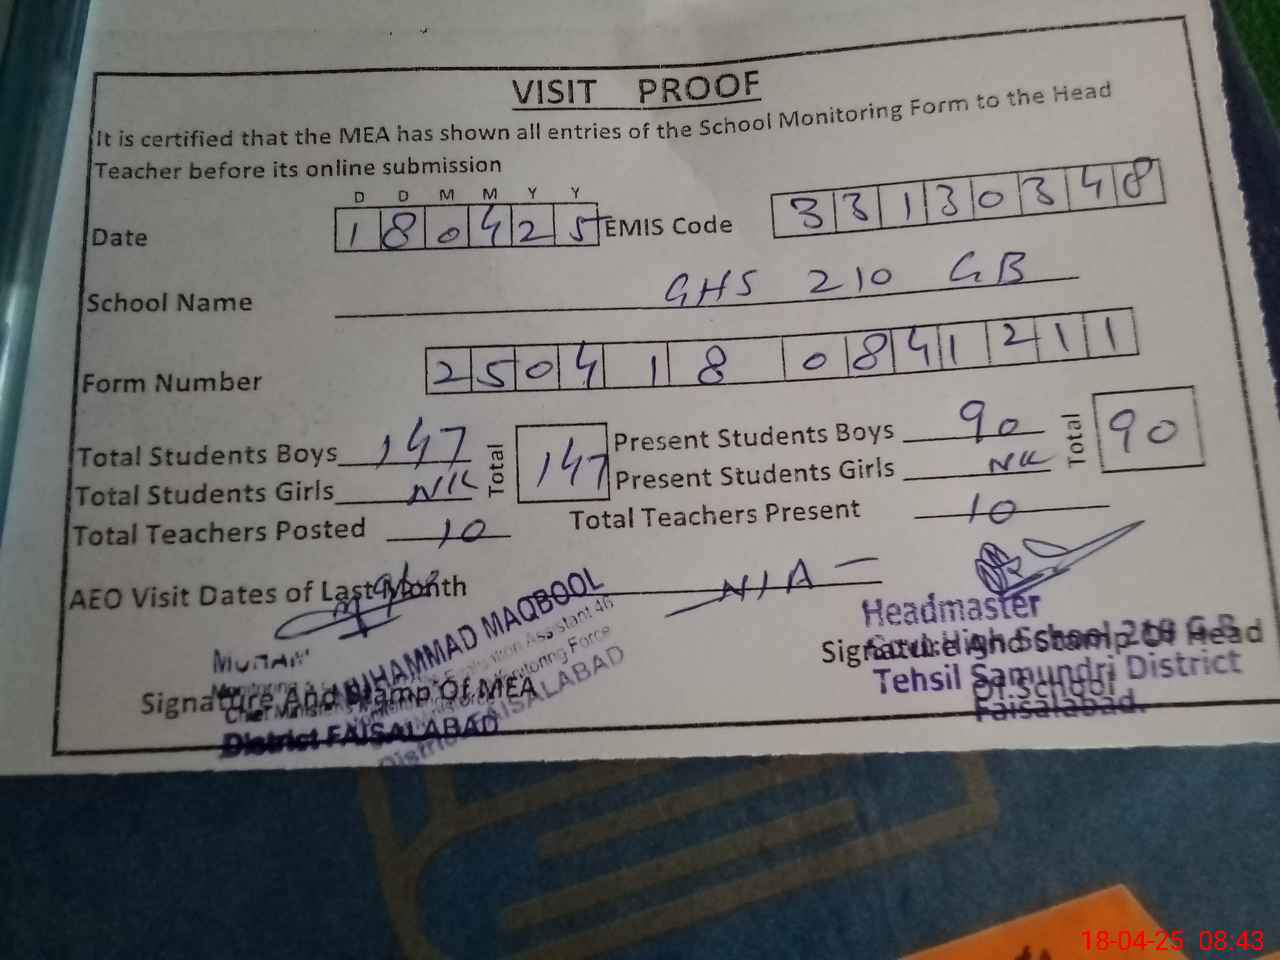 VISIT PROOF
It is certified that the MEA has shown all entries of the School Monitoring Form to the Head
Teacher before its online submission
D D M M Y Y
Date 1 8 0 4 2 5 EMIS Code 3 3 1 3 0 3 4 8
School Name GHS 210 GB
Form Number 2 5 0 4 1 8 0 8 4 1 2 1 1
Total Students Boys 147 Total 147 Present Students Boys 90 Total 90
Total Students Girls NIL Present Students Girls NIL
Total Teachers Posted 10 Total Teachers Present 10
AEO Visit Dates of Last Month N/A
MUHAMMAD MAQBOOL
Assistant 46
Monitoring Force
District FAISALABAD
Signature And Stamp Of MEA
District FAISALABAD
Headmaster
Signature And Stamp Of Head
Of School
Tehsil Samundri District
Faisalabad.
18-04-25 08:43